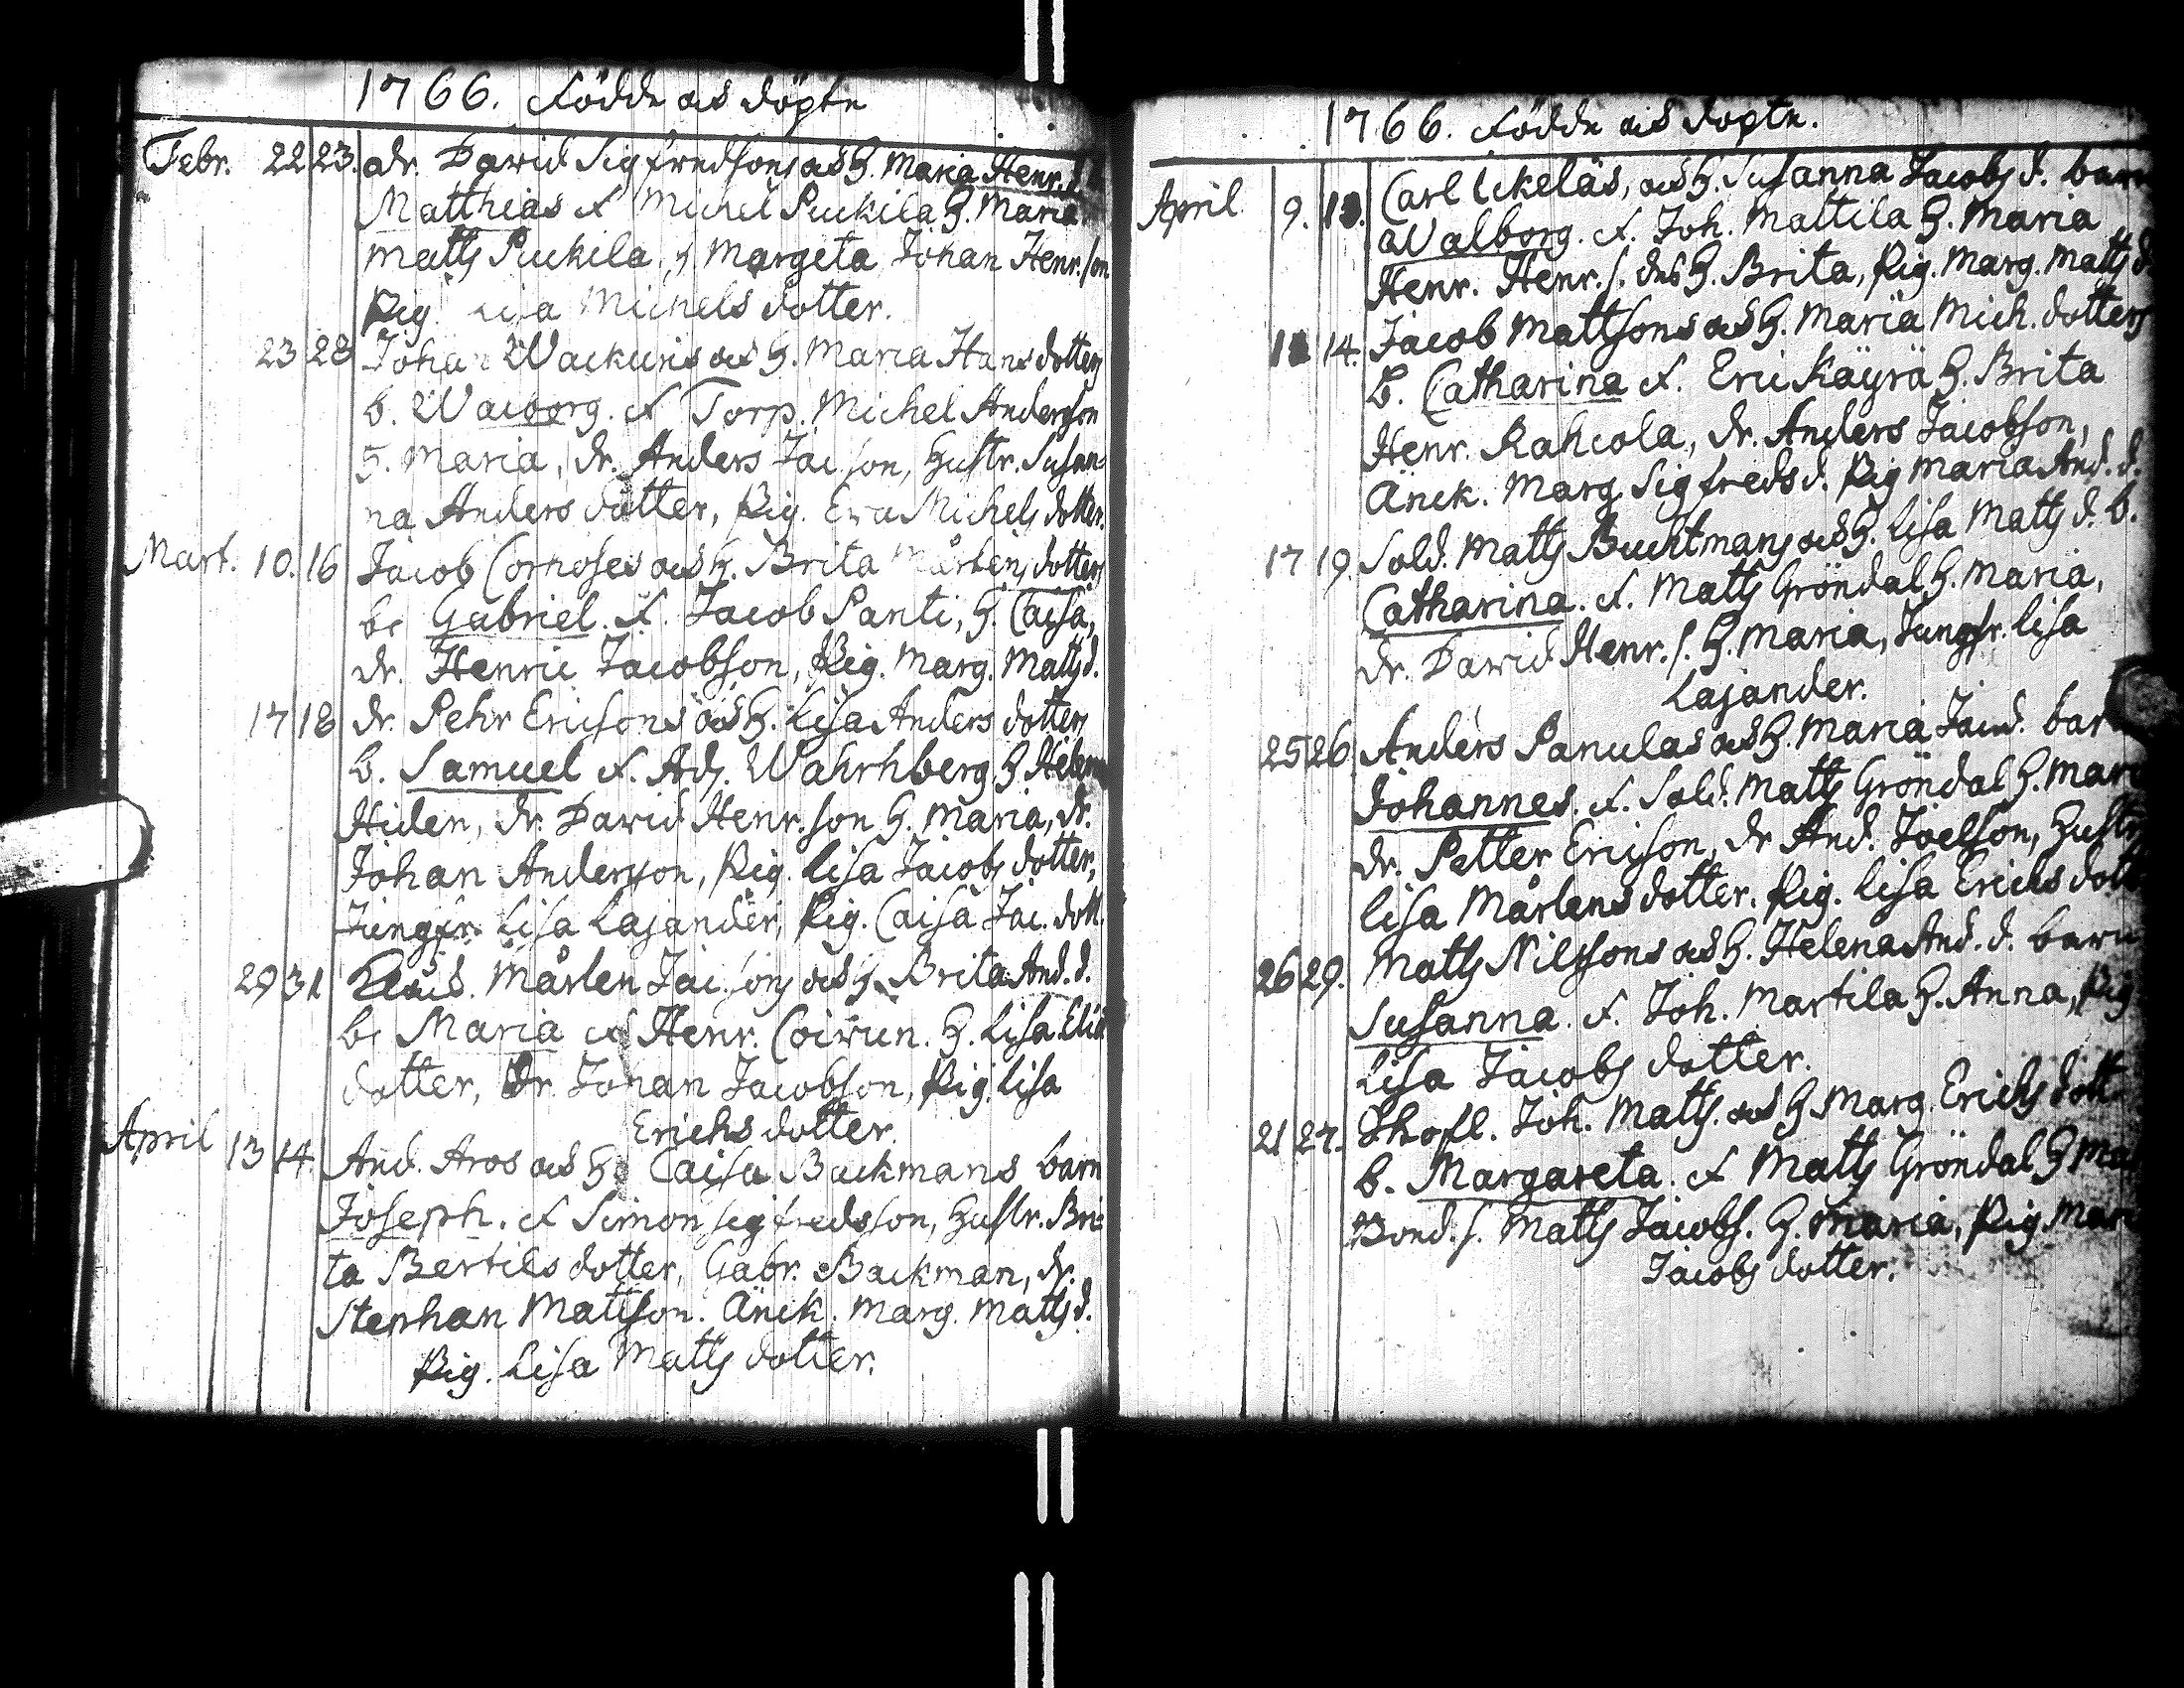 1766. Födde och döpte
Febr. 22 23. dr. David Sigfredsons och H. Maria Henr. d.
Matthias f. Michel Puckila H. Maria
Matts Puckila, Margeta Johan Henr. son
Pig. Lisa Michels dotter.
23 28 Johan Wackuris och H. Maria Hans dotters
b. Walborg. f. Torp. Michel Anderson
H. Maria, dr. Anders Jac. son, Hustr. Susan-
na Anders dotter, Pig. Eva Michels dotter.
Mart. 10. 16 Jacob Cornoses och H. Brita Mårtens dotters
b. Gabriel. f. Jacob Panti, H. Caisa,
dr. Henric Jacobson, Pig. Marg. Matts d.
17 18 dr. Pehr Ericsons och H. Lisa Anders dotters
b. Samuel f. Adj. Wahrnberg H. Helena
Hiden, dr. David Henr. son H. Maria, dr.
Johan Anderson, Pig. Lisa Jacobs dotter,
Jungfr. Lisa Lajander, Pig. Caisa Jac. dott.
29 31 Mårten Jac. sons och H. Brita And. d.
b. Maria f. Henr. Coivun. H. Lisa
dotter, Dr. Johan Jacobson, Pig. Lisa
Erichs dotter.
April 13 14. And. Aros och H. Caisa Backmans barn
Joseph. f. Simon Sigfredsson, Hustr. Bri-
ta Bertils dotter, Gabr. Backman, dr.
Stephan Mattson. Änck. Marg. Matts d.
Pig. Lisa Matts dotter.
1766. Födde och döpte.
April 9. 13. Carl Uckeläs, och H. Susanna Jacobs d. barn
Walborg. f. Joh. Mattila H. Maria
Henr. Henr. s. dess H. Brita, Pig. Marg. Matts d.
14. Jacob Mattsons och H. Maria Mich. dotters
b. Catharina f. Eric Käyrä H. Brita
Henr. Rahcola, dr. Anders Jacobson,
Änck. Marg. Sigfreds d. Pig Maria And. d.
17 19. Sold. Matts Buchtmans och H. Lisa Matts d. b.
Catharina. f. Matts Gröndal H. Maria,
dr. David Henr. s. H. Maria, Jungfr. Lisa
Lajander.
25 26 Anders Panulas och H. Maria Jac. d. barn
Johannes. f. Sold. Matts Gröndal H. Maria
dr. Petter Ericson, dr And. Joelson, Hustr.
Lisa Mårtens dotter. Pig. Lisa Erichs dott
26 29. Matts Nilssons och H. Helena And. d. barn
Susanna. f. Joh. Martila H. Anna, Pig
Lisa Jacobs dotter.
21 27. Joh. Matts. och H Marg. Erichs dott
b. Margareta. f Matts Gröndal H Ma
Bond. s. Matts Jacobs. H. Maria, Pig. Mari
Jacobs dotter.